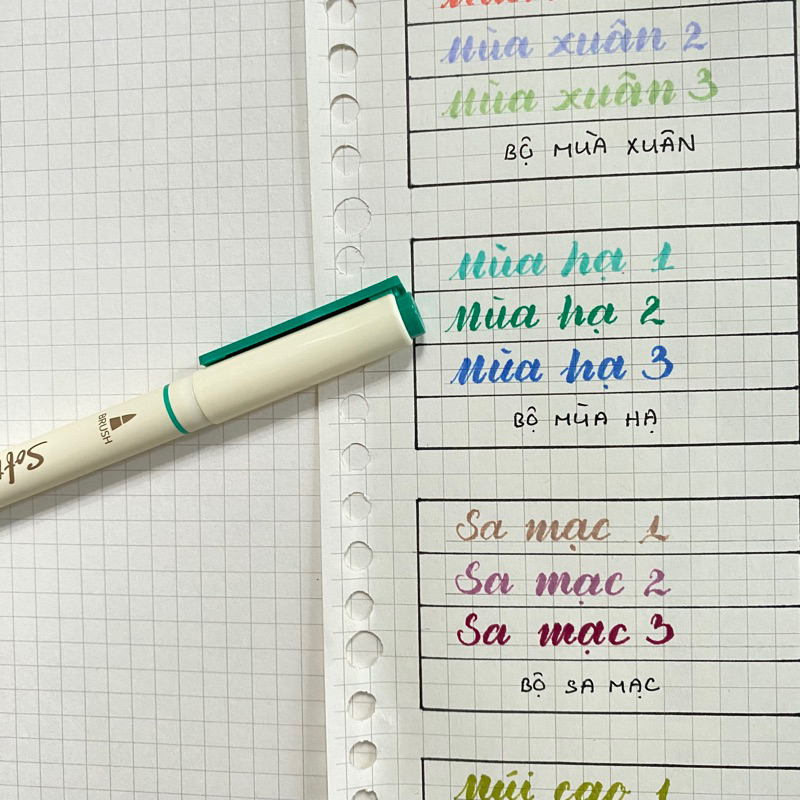 Mùa xuân 2
Mùa xuân 3
BỘ MÙA XUÂN
Mùa hạ 1
Mùa hạ 2
Mùa hạ 3
BỘ MÙA HẠ
BRUSH
Sa mạc 1
Sa mạc 2
Sa mạc 3
BỘ SA MẠC
Núi cao 1